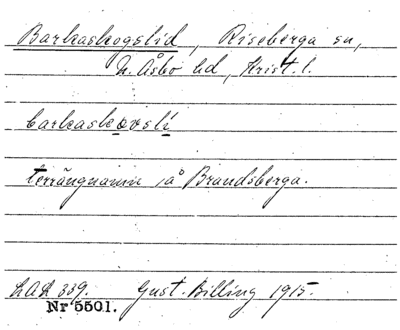 Barkaskogslid, Riseberga sn,
N. Åsbo hd, Krist. l.
barkaskovslí
terrängnamn på Brandsberga.
LAL 339. Gust. Billing 1915.
Nr 5501.